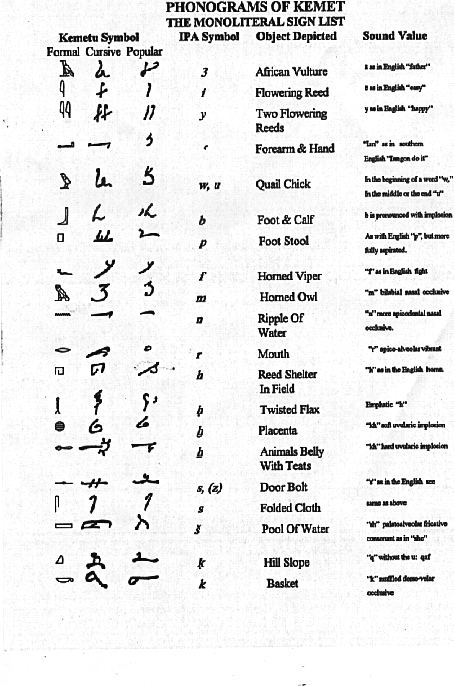 PHONOGRAMS OF KEMET
THE MONOLITERAL SIGN LIST
Kemetu Symbol IPA Symbol Object Depicted Sound Value
Formal Cursive Popular
3 African Vulture as in English "father"
i Flowering Reed as in English "easy"
y Two Flowering y as in English "happy"
Reeds
Forearm & Hand as in southern
English "I'mgon do it"
w, u Quail Chick In the beginning of a word "w,"
In the middle or the end "u"
b Foot & Calf b is pronounced with implosion
p Foot Stool As with English "p", but more
fully aspirated.
f Horned Viper "f" as in English fight
m Horned Owl "m" bilabial nasal occlusive
n Ripple Of "n" more apicodental nasal
Water occlusive.
r Mouth "r" apico-alveolar vibrant
h Reed Shelter "h" as in the English home.
In Field
ḥ Twisted Flax Emphatic "h"
ḫ Placenta "kh" soft uvularic implosion
ẖ Animals Belly "kh" hard uvularic implosion
With Teats
s, (z) Door Bolt as in the English see
s Folded Cloth same as above
š Pool Of Water "sh" palatoalveolar fricative
consonant as in "she"
ḳ Hill Slope "q" without the u: qaf
k Basket "k" muffled dorso-velar
occlusive